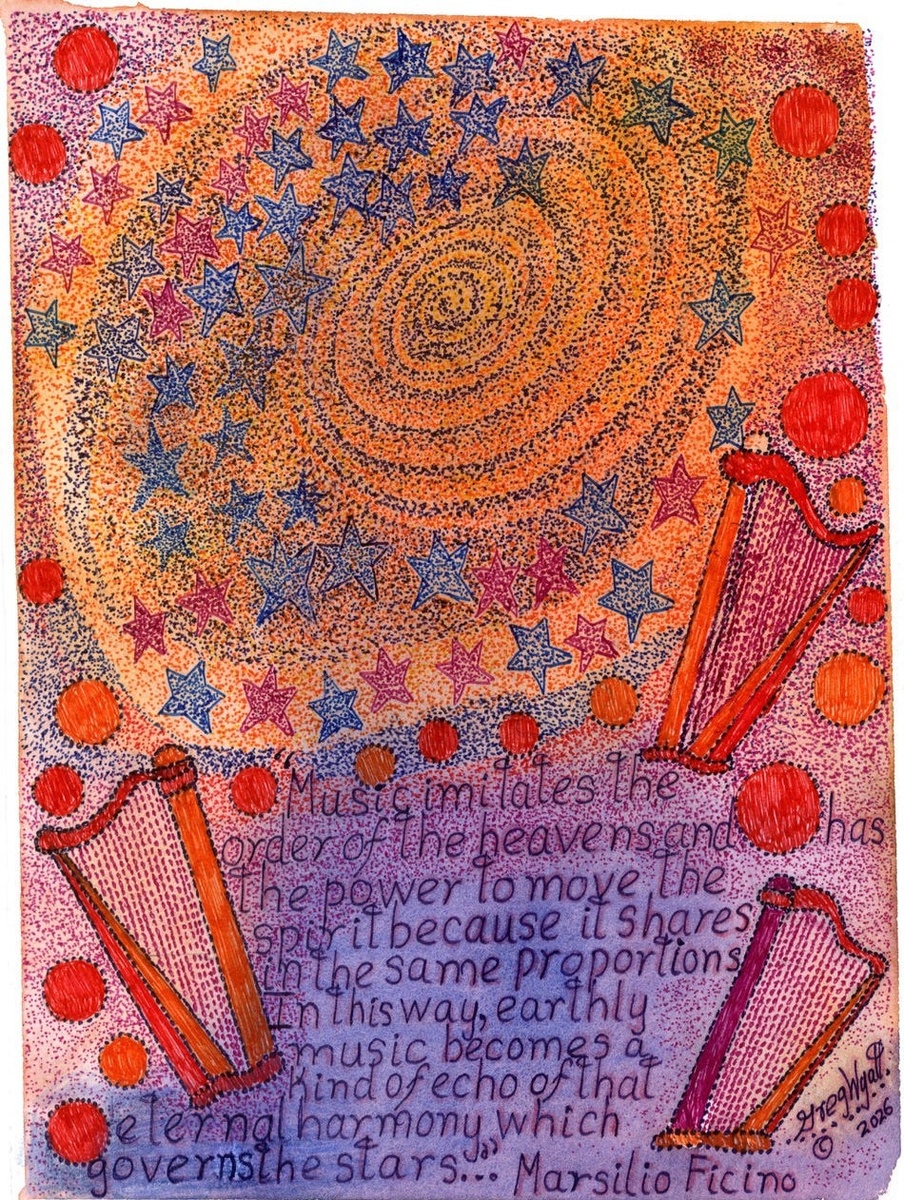 "Music imitates the
order of the heavens and has
the power to move the
spirit because it shares
in the same proportions
In this way, earthly
music becomes a
kind of echo of that
eternal harmony which
governs the stars..." Marsilio Ficino
Greg Wyatt
© 2026